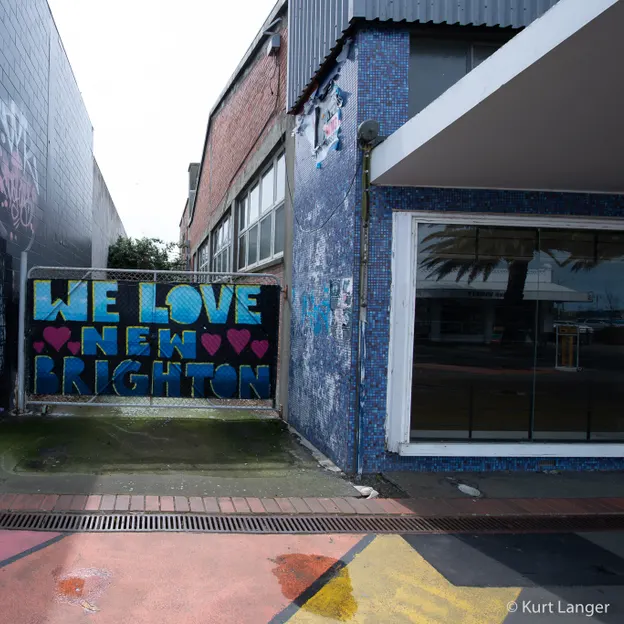 WE LOVE
NEW
BRIGHTON
© Kurt Langer